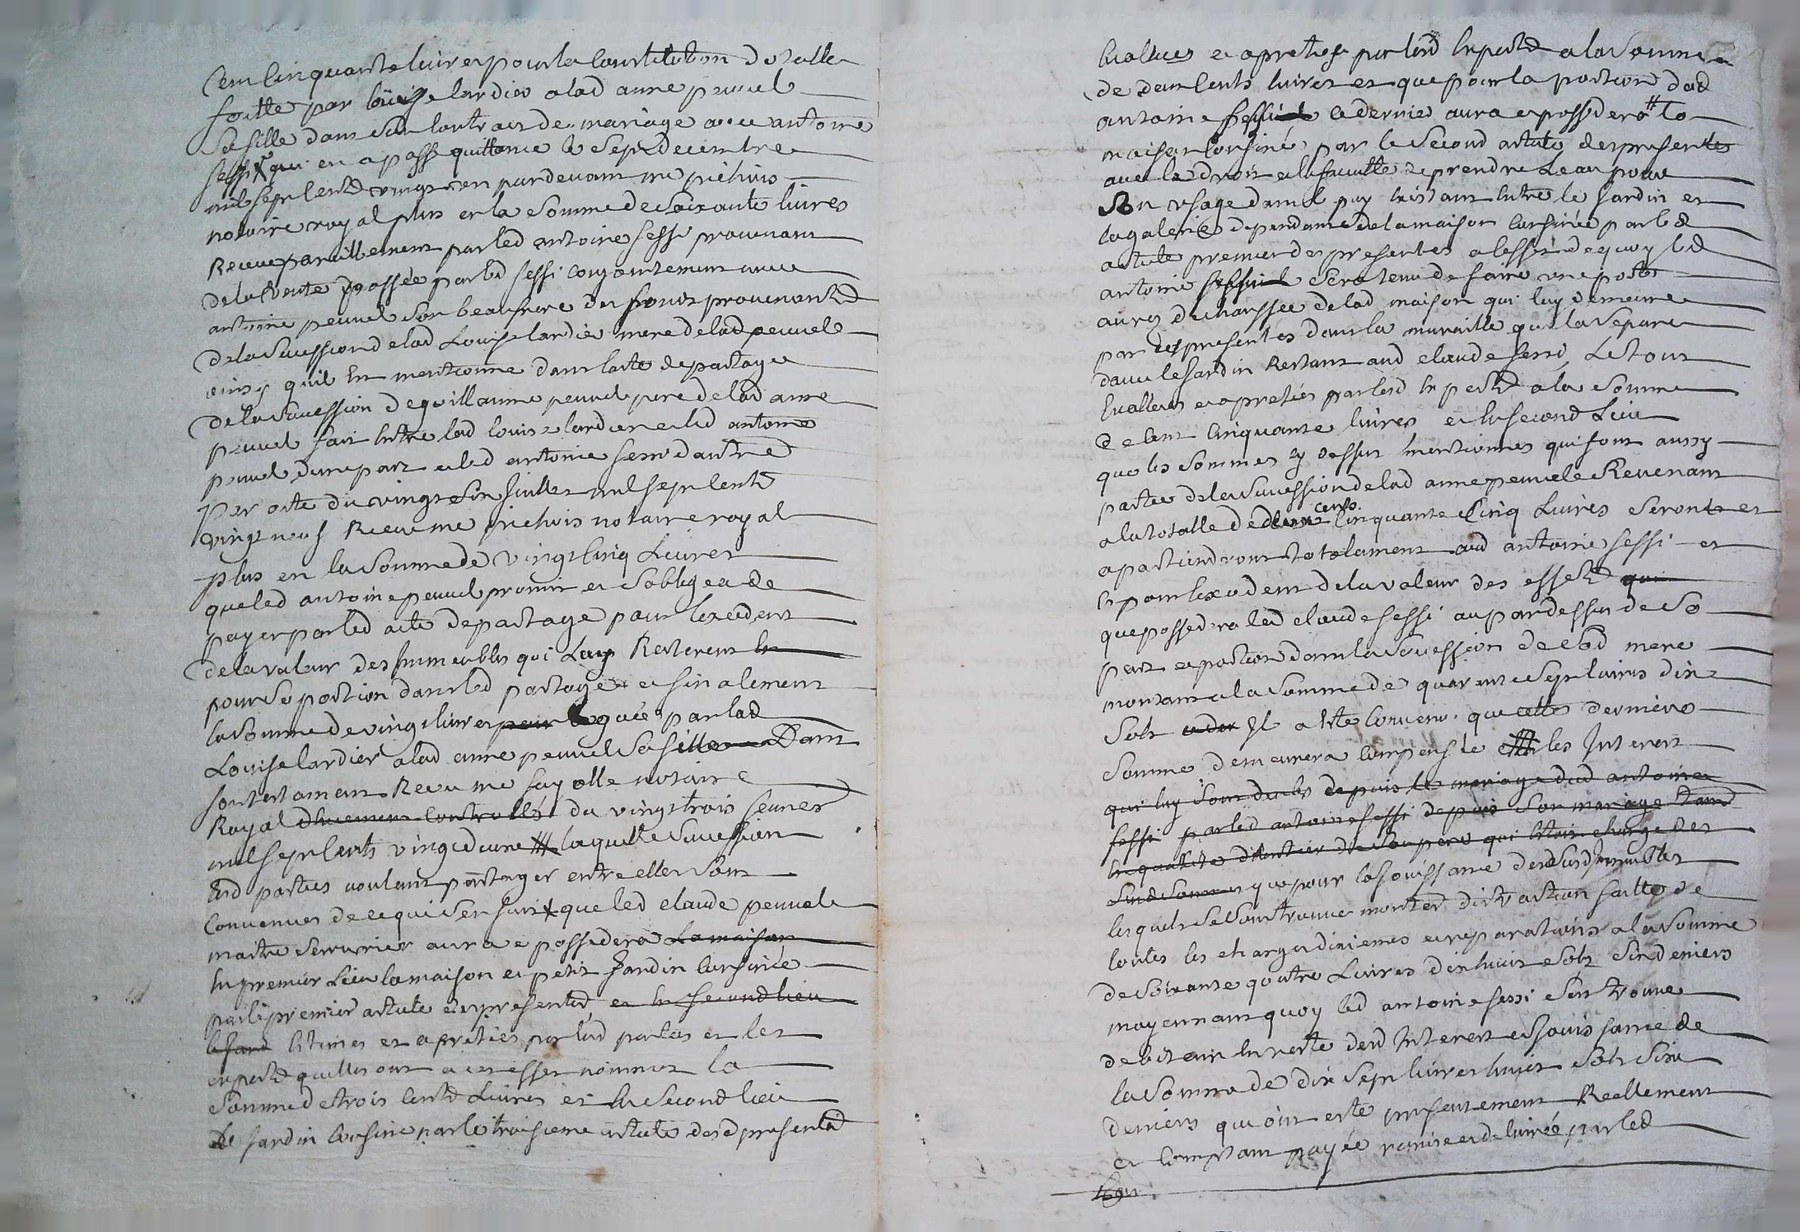 Cent cinquante livres pour la Constitution dotalle
faitte par Louise lardier a lad anne peuvel
Sa fille dans Son Contrac de mariage avec antoine
sessi qui en a passé quittance le Sept decembre
mil sept cents vingt un pardevant me pichois
notaire royal plus en la Somme de Soixante livres
Receue pareillement par led antoine sessi provenant
de la vente passée par led sessi conjointement avec
antoine peuvel Son beaufrere des fonds provenants
de la Succession de lad Louise lardier mere de lad peuvel
ainsy quil est mentionné dans lacte de partage
de la Succession de guillaume peuvel pere de lad anne
peuvel fait Entre lad louise lardier et led antoine
peuvel dune part et led antoine sessi dautre
par acte du vingt Six juillet mil sept cents
vingt neuf Receu me pichois notaire royal
plus en la Somme de vingt Cinq Livres
que led antoine peuvel promit et Sobligea de
payer par led acte de partage pour lexcedent
de la valeur des Immeubles qui Luy Resterent En
pour Sa portion dans led partage et finalement
la Somme de vingt livres pour leguée par lad
Louise lardier a lad anne peuvel Sa fille Dans
Son testament Receu me fayolle notaire
Royal dhuement Controllé du vingt trois fevrier
mil sept cents vingt deux laquelle Succession
lesd parties voulant partager entre elles Sont
Convenues de ce qui Sensuit que led claude peuvel
maitre Serrurier aura et possedera La maison
En premier Lieu la maison et petit Jardin Confiné
par le premier article des presentes et En second lieu
le fond Estimés et apretiés par lesd parties et les
experts quelles ont a cet effet nommés la
Somme de trois Cents Livres et En Second lieu
Le Jardin Confiné par le troisieme article desd presentes
Evallués et apretiés par lesd Experts a la Somme
de deux Cents livres et que pour la portion dud
antoine sessi ce dernier aura et possedera la
maison Confiné par le Second article des presentes
avec le droit et la faculté de prendre Leau pour
Son usage dans le puy Existant Entre le Jardin et
la galerie dependante de la maison Confinée par led
article premier des presentes a leffet de quoy led
antoine sessi Sera tenu de faire une porte
au rez de chaussée de lad maison qui luy demeure
par les presentes dans la muraille qui la Separe
davec le Jardin Restant aud claude sessi, Le tout
Evallués et apretiés par lesd Experts a la Somme
de Cent Cinquante livres et En second Lieu
que les Sommes cy dessus mentionnés qui font aussy
partie de la Succession de lad anne peuvel et Revenant
a la totalle de deux cents Cinquante Cinq Livres Seront et
apartiendront totalement aud antoine sessi et
Et pour lexcedent de la valeur des effets qui
que possedera led claude sessi au pardessus de Sa
part et portion dans la Succession de lad mere
montant a la Somme de quarante Sept livres dix
Sols Il a Eté Convenu que cette derniere
Somme demeurera Compensée avec les Interets
qui luy Sont deubs depuis le mariage dud antoine
sessi par led antoine sessi depuis Son mariage dans
la qualité dheritier de Son pere qui Etoit chargé des
que pour la Jouissance desdits Immeubles
lesquels Se Sont trouvé monter distraction faitte de
toutes les charges et reparations a la Somme
de Soixante quatre Livres dix huit Sols Six deniers
moyennant quoy led antoine sessi Sest trouvé
debiteur En reste desd Interets et Jouissance de
la Somme de dix Sept livres huit Sols Six
deniers qui ont eté presentement Reellement
et Comptant payée remise et delivrée par led